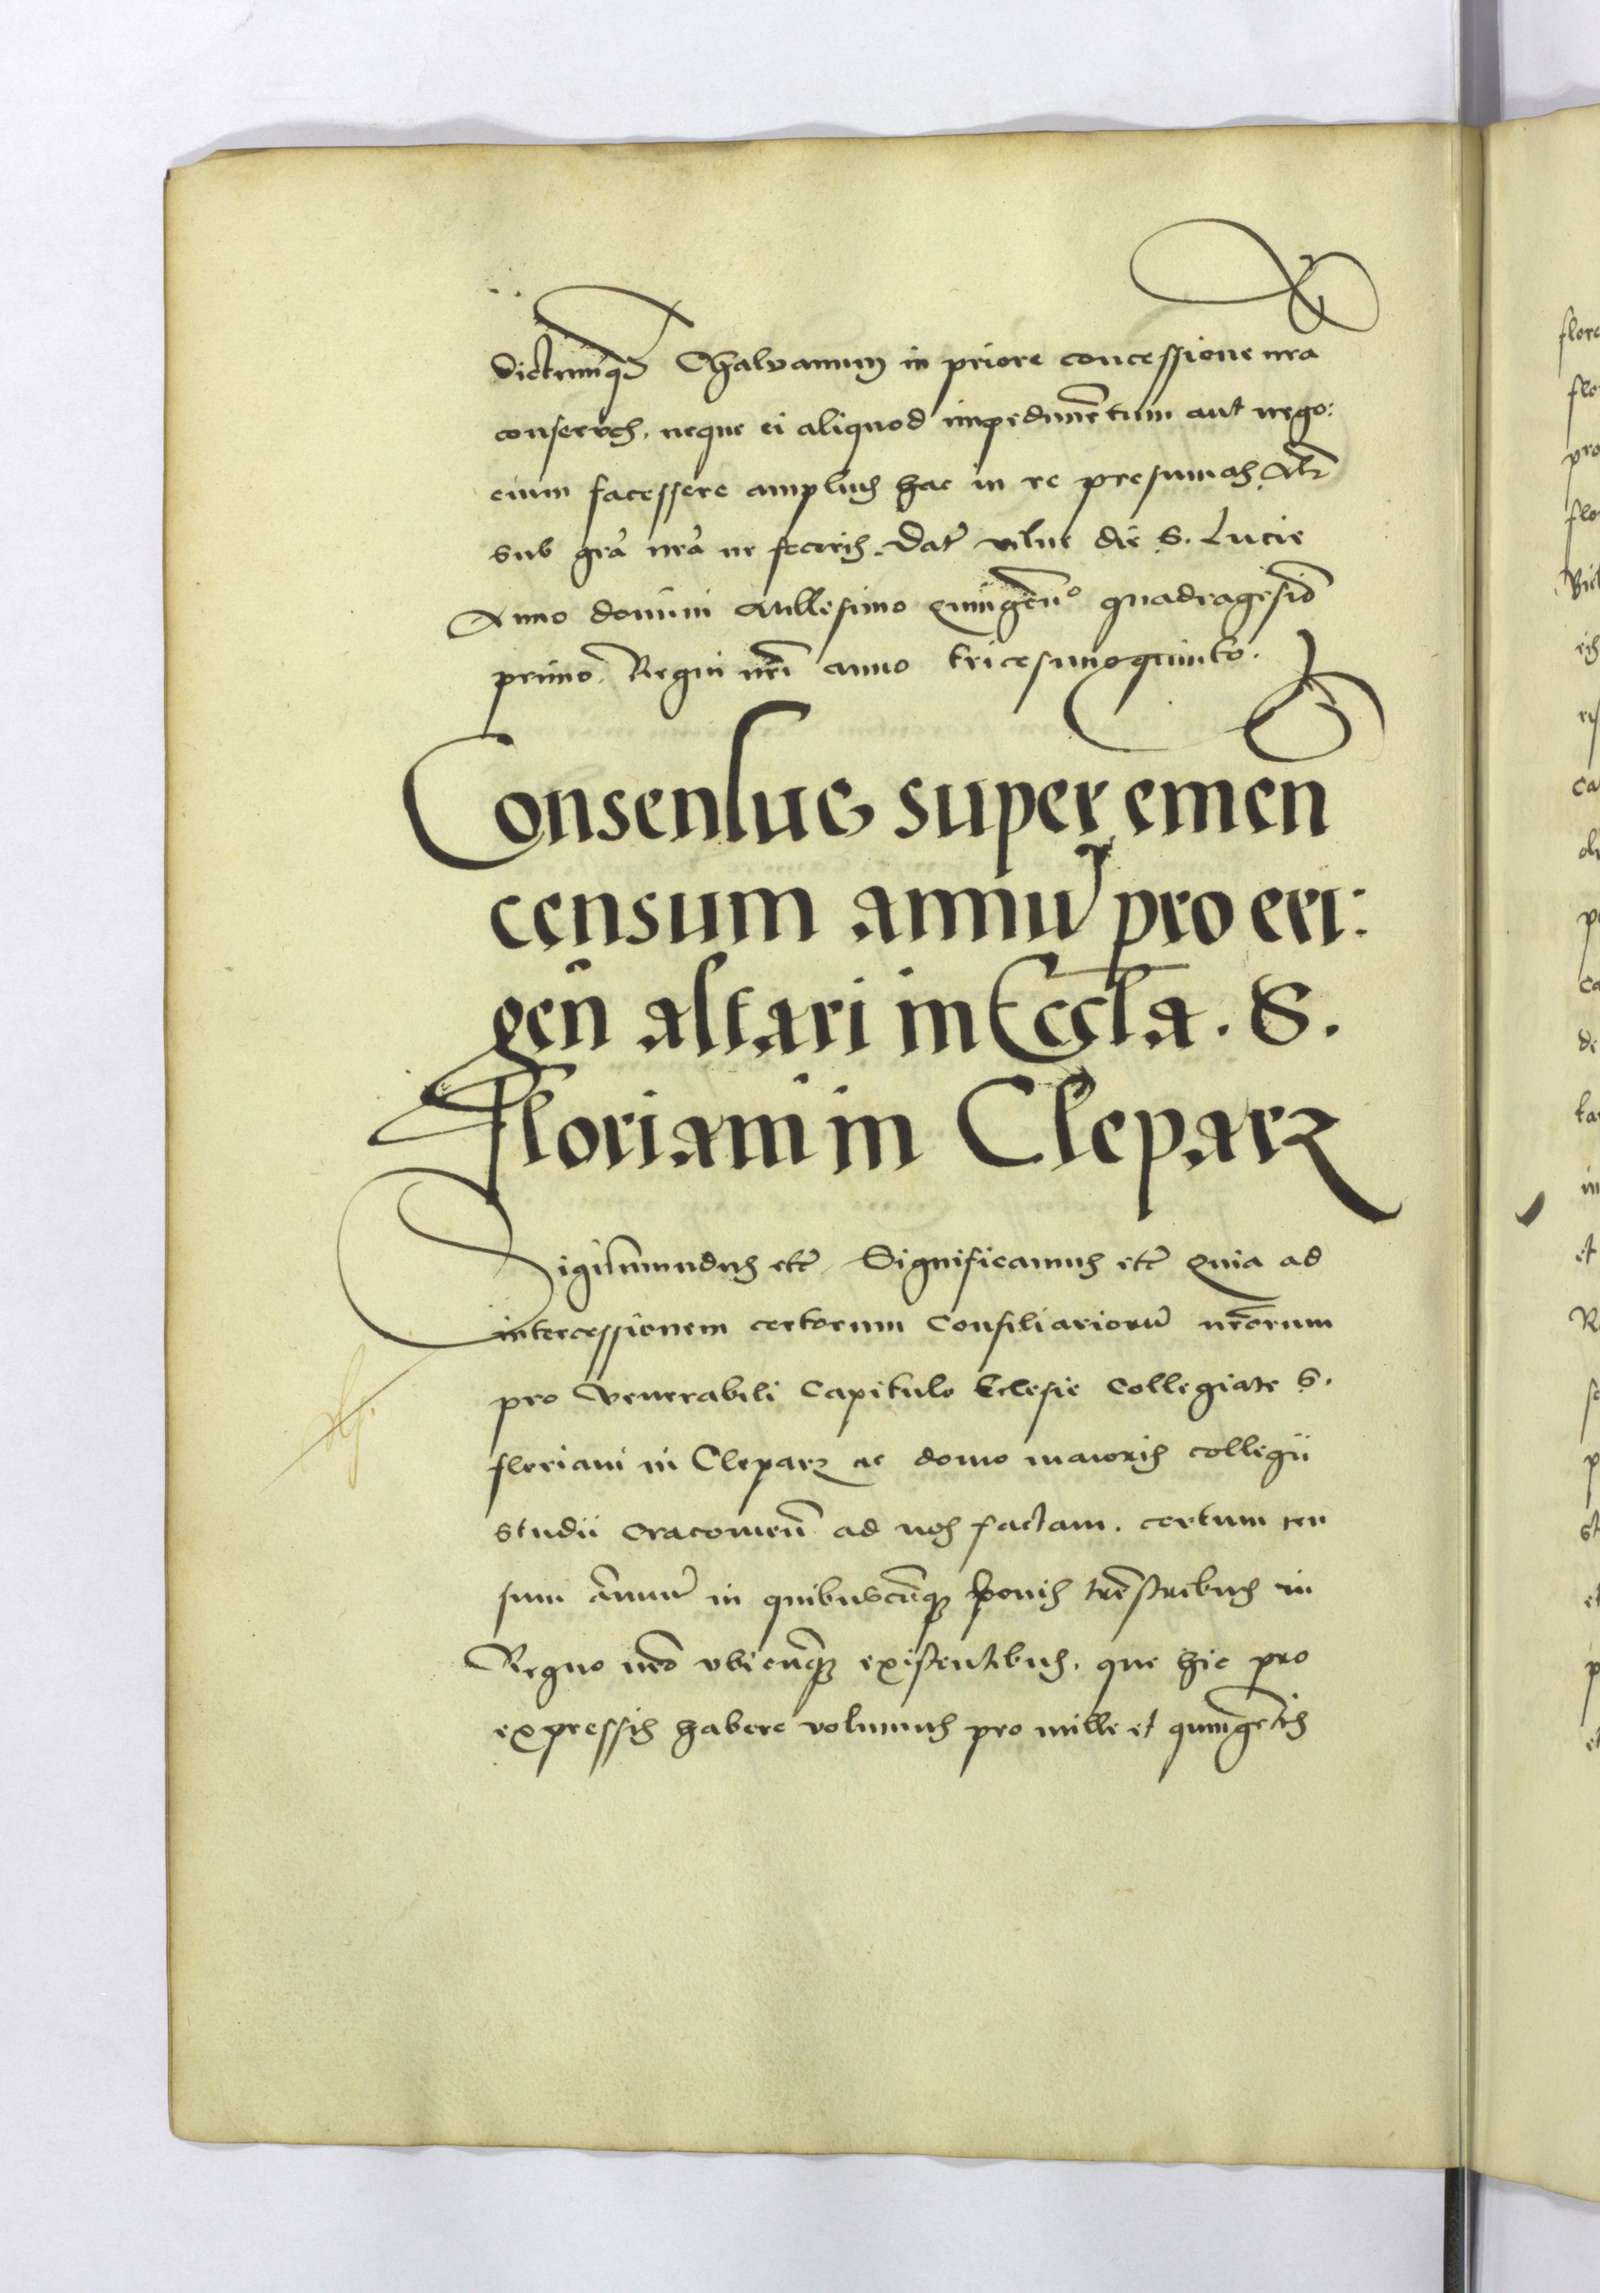 dictumq̃ Chalvanum in priore concessione nra
conserves. neque ei aliquod impedimẽtum aut nego:
cium facessere amplius hac in re presumas. Alr̃
sub gr̃a nr̃a ne feceris. Dat̃ vilne die S. Lucie
Anno domini Millesimo quingẽnᵒ quadragesiõ
primo. Regni nr̃i anno tricesimoquinto.
Consensus super emen
censum annuũ pro eri:
gen̄ altari in Eccl̄a. S.
Floriani in Cleparz
Sigismundus etc̃ Significamus etc̃ Quia ad
intercessionem certorum Consiliariorũ nr̃orum
pro Venerabili Capitulo Eclesie Collegiate S.
floriani in Cleparz ac domo maioris collegii
studii cracovien̄ ad nos factam. certum cen
sum ãnnuũ in quibuscũq̃ bonis tr̃estribus in
Regno nr̃o ubicũq̃ existentibus. que hic pro
expressis habere volumus pro mille et quingẽtis